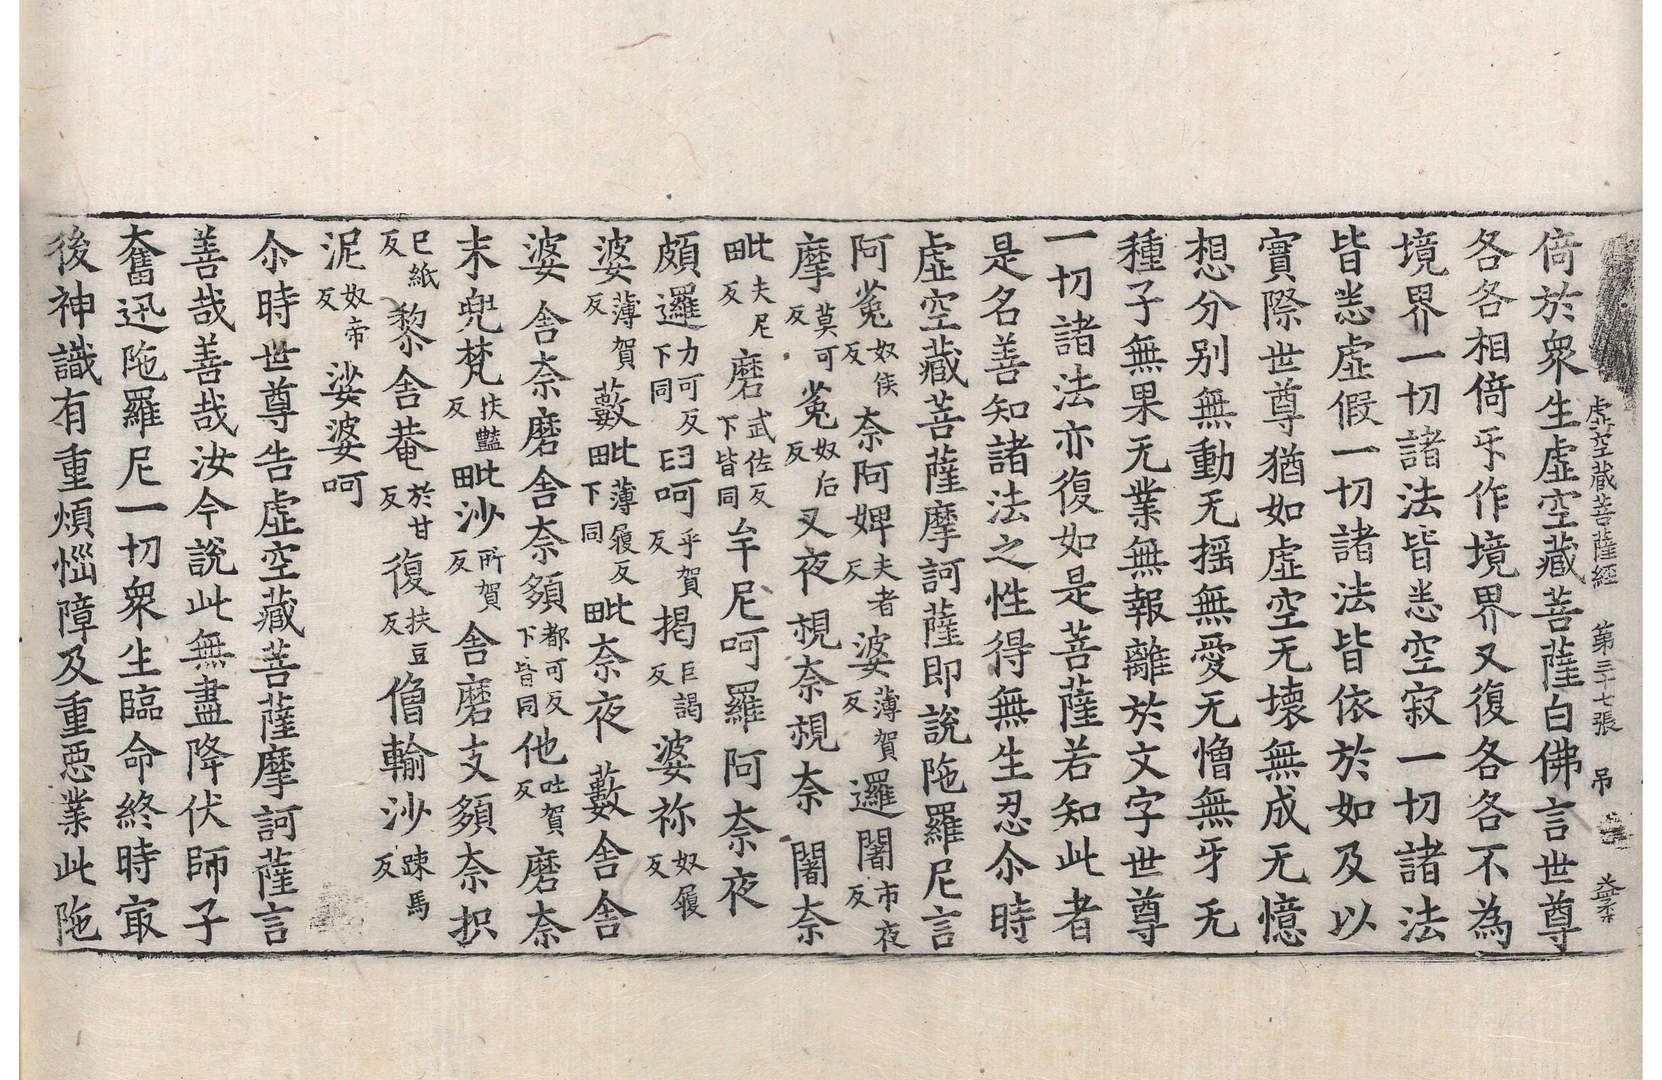 虛空藏菩薩經 第三十七張 吊
倚於衆生虛空藏菩薩白佛言世尊
各各相倚乐作境界又復各各不為
境界一切諸法皆悉空寂一切諸法
皆悉虛假一切諸法皆依於如及以
實際世尊猶如虛空无壞無成无憶
想分别無動无摇無愛无憎無牙无
種子無果无業無報離於文字世尊
一切諸法亦復如是菩薩若知此者
是名善知諸法之性得無生忍尒時
虛空藏菩薩摩訶薩即說陁羅尼言
阿㝹奴侯反奈阿婢夫者反婆薄賀反邏闍市夜反
摩莫可反㝹奴后反叉夜覩奈覩奈闍奈
毗夫尼反磨武佐反下皆同牟尼呵羅阿奈夜
頗邏力可反下同曰呵乎賀反揭巨謁反婆祢奴履反
婆薄賀反藪毗薄履反下同毗奈夜藪舍舍
婆舍奈磨舍奈頞都可反下皆同他吐賀反磨奈
末兜梵扶豔反毗沙所賀反舍磨支頞奈抧
已紙反黎舍菴於甘反復扶豆反僧輸沙踈馬反
泥奴帝反娑婆呵
尒時世尊告虛空藏菩薩摩訶薩言
善哉善哉汝今說此無盡降伏師子
奮迅陁羅尼一切衆生臨命終時㝡
後神識有重煩惱障及重惡業此陁